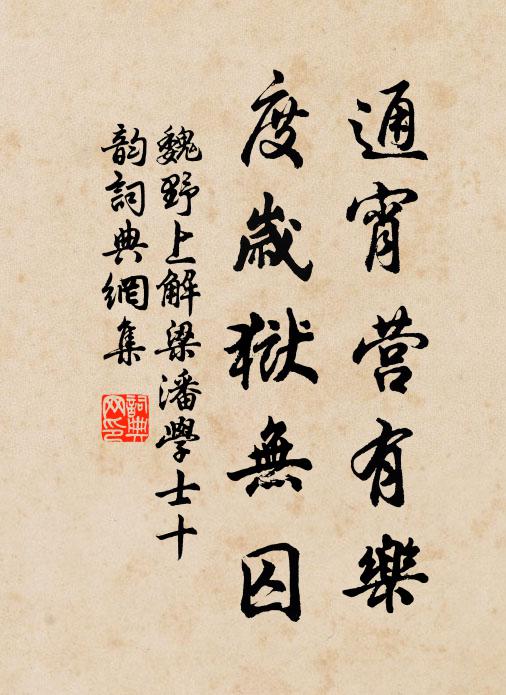 通宵营有樂
度歲獄無囚
魏野上解梁潘學士十
韵詞典網集
詞典網印